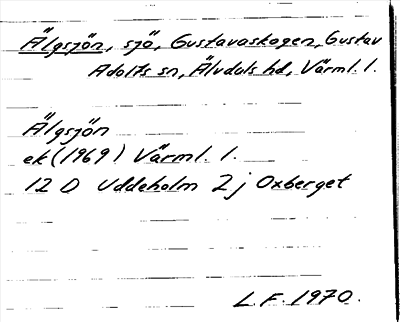 Älgsjön, sjö, Gustavaskogen, Gustav
Adolfs sn, Älvdals hd, Värml. l.
Älgsjön
ek (1969) Värml. l.
12 D Uddeholm 2 j Oxberget
L.F. 1970.